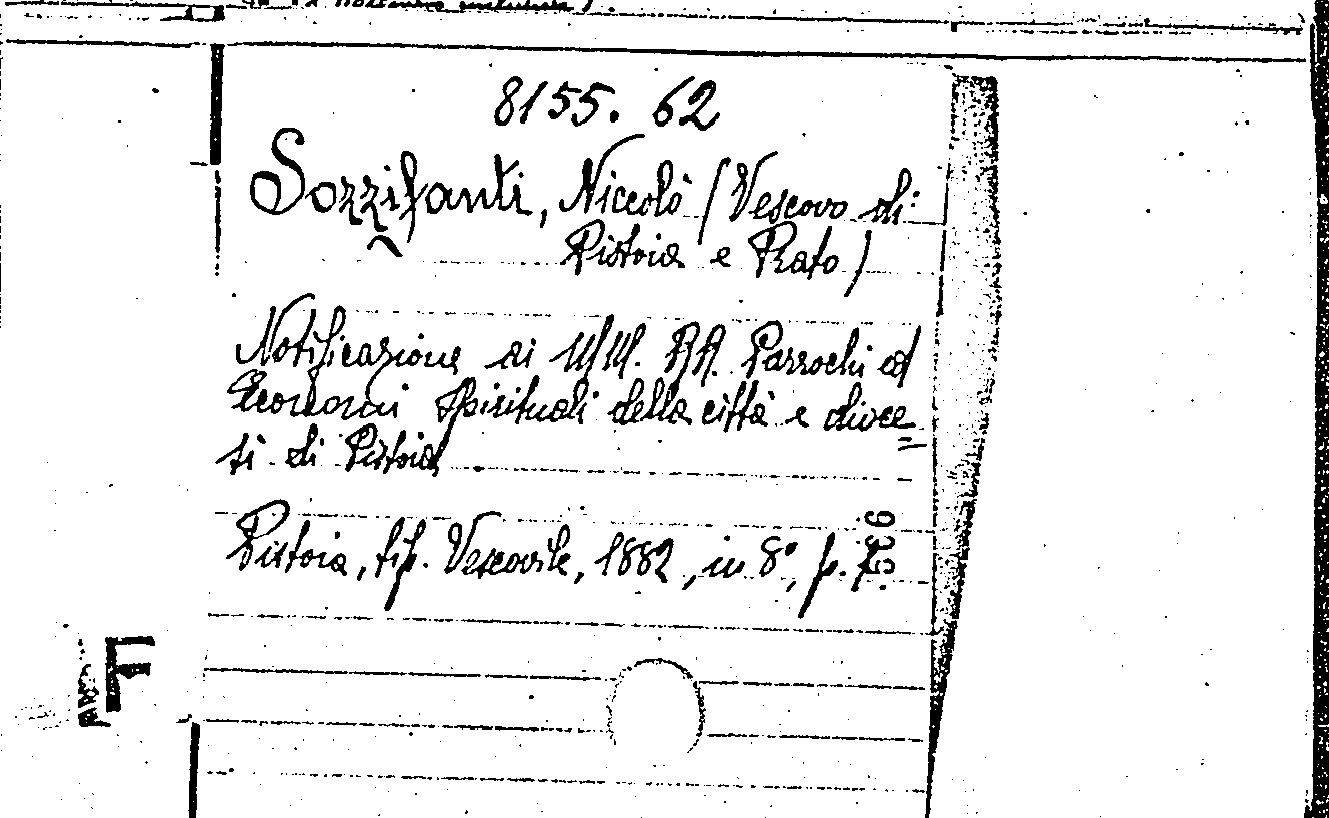 8155. 62
Sozzifanti, Niccolò (Vescovo di
Pistoia e Prato)
Notificazione ai MM. RR. Parrochi ed
Economi spirituali della città e dioce=
si di Pistoia
Pistoia, tip. Vescovile, 1882, in 8°, p. 7.
935
F